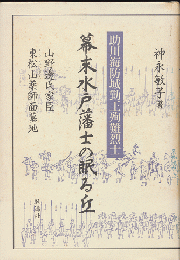 神永敏子著
助川海防城勤王殉難烈士
幕末水戸藩士の眠る丘
山野辺氏家臣
東松山薬師面墓地